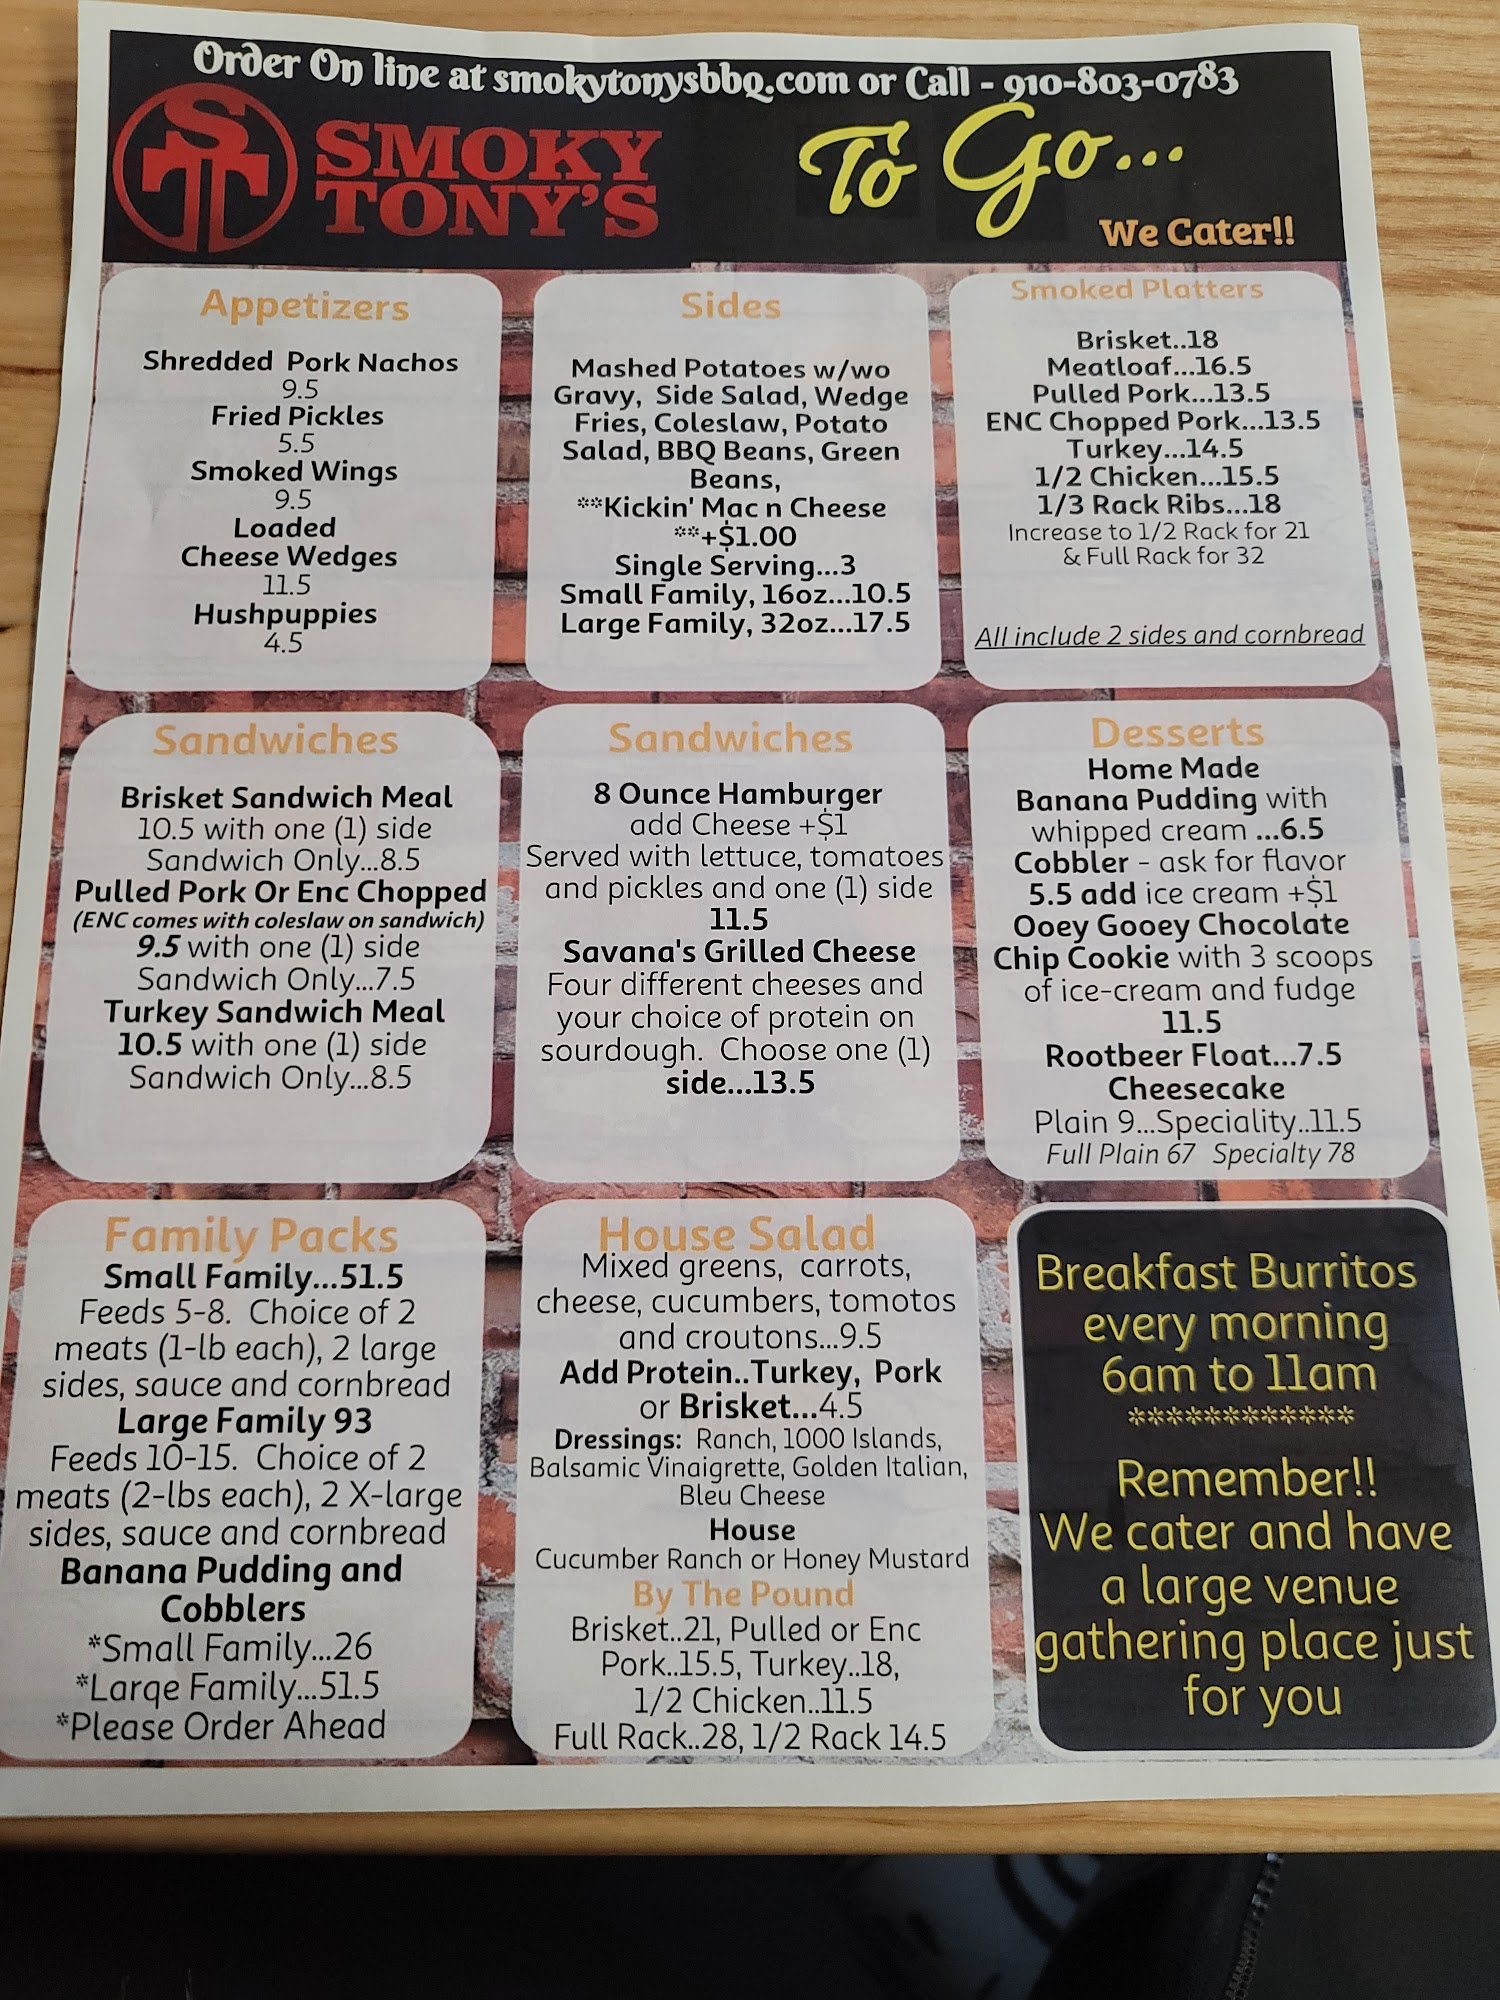 Order On line at smokytonysbbq.com or Call - 910-803-0783
ST
SMOKY
TONY'S
To Go...
We Cater!!
Appetizers
Shredded Pork Nachos
9.5
Fried Pickles
5.5
Smoked Wings
9.5
Loaded
Cheese Wedges
11.5
Hushpuppies
4.5
Sides
Mashed Potatoes w/wo
Gravy, Side Salad, Wedge
Fries, Coleslaw, Potato
Salad, BBQ Beans, Green
Beans,
**Kickin' Mac n Cheese
**+$1.00
Single Serving...3
Small Family, 16oz...10.5
Large Family, 32oz...17.5
Smoked Platters
Brisket..18
Meatloaf...16.5
Pulled Pork...13.5
ENC Chopped Pork...13.5
Turkey...14.5
1/2 Chicken...15.5
1/3 Rack Ribs...18
Increase to 1/2 Rack for 21
& Full Rack for 32
All include 2 sides and cornbread
Sandwiches
Brisket Sandwich Meal
10.5 with one (1) side
Sandwich Only...8.5
Pulled Pork Or Enc Chopped
(ENC comes with coleslaw on sandwich)
9.5 with one (1) side
Sandwich Only...7.5
Turkey Sandwich Meal
10.5 with one (1) side
Sandwich Only...8.5
Sandwiches
8 Ounce Hamburger
add Cheese +$1
Served with lettuce, tomatoes
and pickles and one (1) side
11.5
Savana's Grilled Cheese
Four different cheeses and
your choice of protein on
sourdough. Choose one (1)
side...13.5
Desserts
Home Made
Banana Pudding with
whipped cream ...6.5
Cobbler - ask for flavor
5.5 add ice cream +$1
Ooey Gooey Chocolate
Chip Cookie with 3 scoops
of ice-cream and fudge
11.5
Rootbeer Float...7.5
Cheesecake
Plain 9...Speciality..11.5
Full Plain 67 Specialty 78
Family Packs
Small Family...51.5
Feeds 5-8. Choice of 2
meats (1-lb each), 2 large
sides, sauce and cornbread
Large Family 93
Feeds 10-15. Choice of 2
meats (2-lbs each), 2 X-large
sides, sauce and cornbread
Banana Pudding and
Cobblers
*Small Family...26
*Large Family...51.5
*Please Order Ahead
House Salad
Mixed greens, carrots,
cheese, cucumbers, tomotos
and croutons...9.5
Add Protein..Turkey, Pork
or Brisket...4.5
Dressings: Ranch, 1000 Islands,
Balsamic Vinaigrette, Golden Italian,
Bleu Cheese
House
Cucumber Ranch or Honey Mustard
By The Pound
Brisket..21, Pulled or Enc
Pork..15.5, Turkey..18,
1/2 Chicken..11.5
Full Rack..28, 1/2 Rack 14.5
Breakfast Burritos
every morning
6am to 11am
************
Remember!!
We cater and have
a large venue
gathering place just
for you